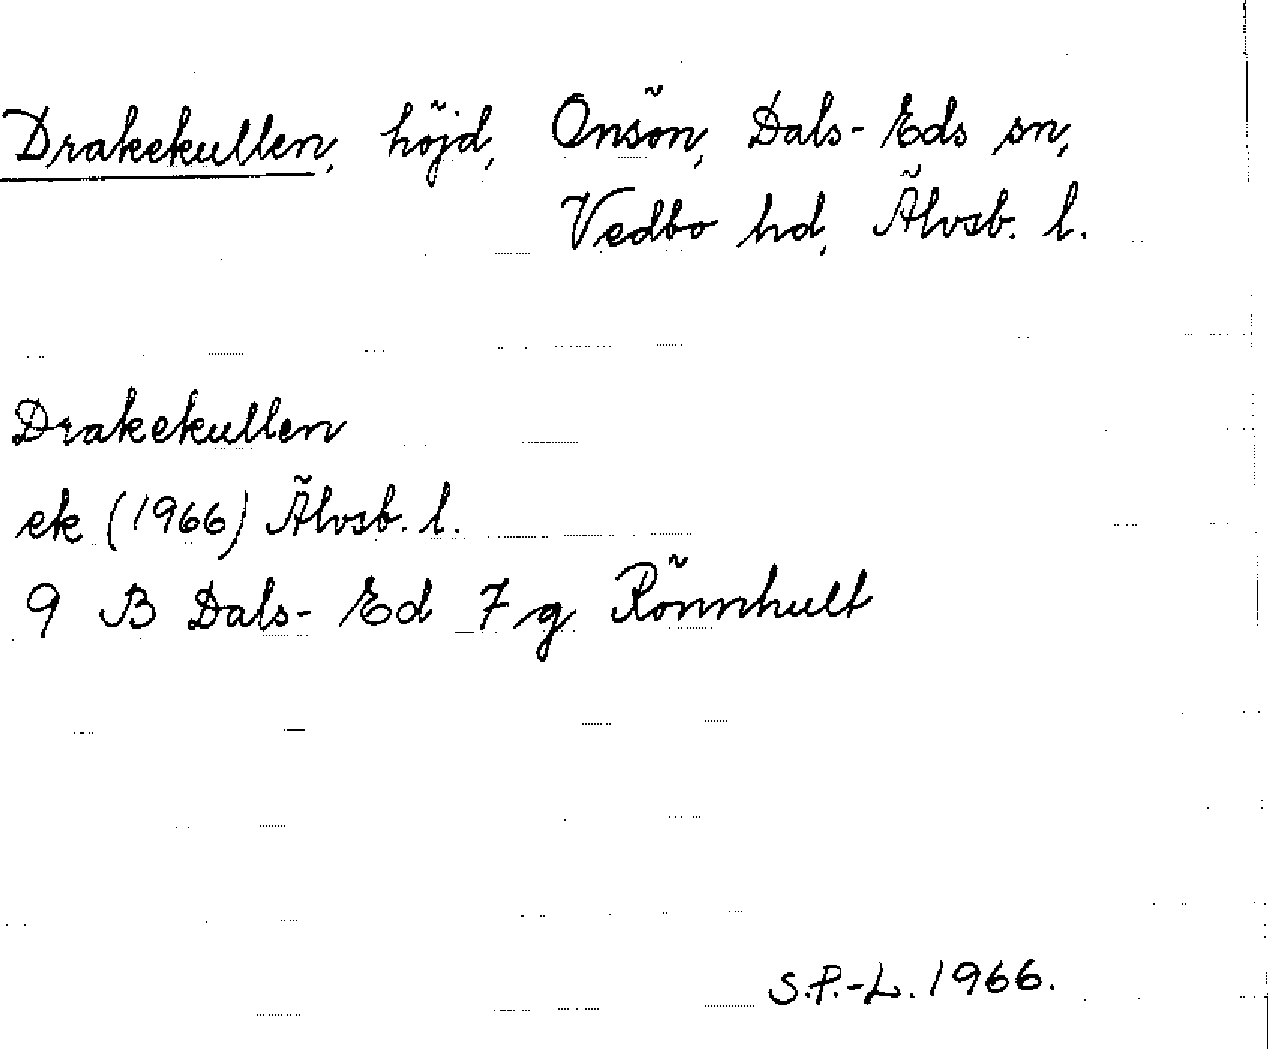 Drakekullen, höjd, Onsön, Dals-Eds sn,
Vedbo hd, Älvsb. l.
Drakekullen
ek (1966) Älvsb. l.
9 B Dals-Ed 7 g Rönnhult
S.P.-L. 1966.